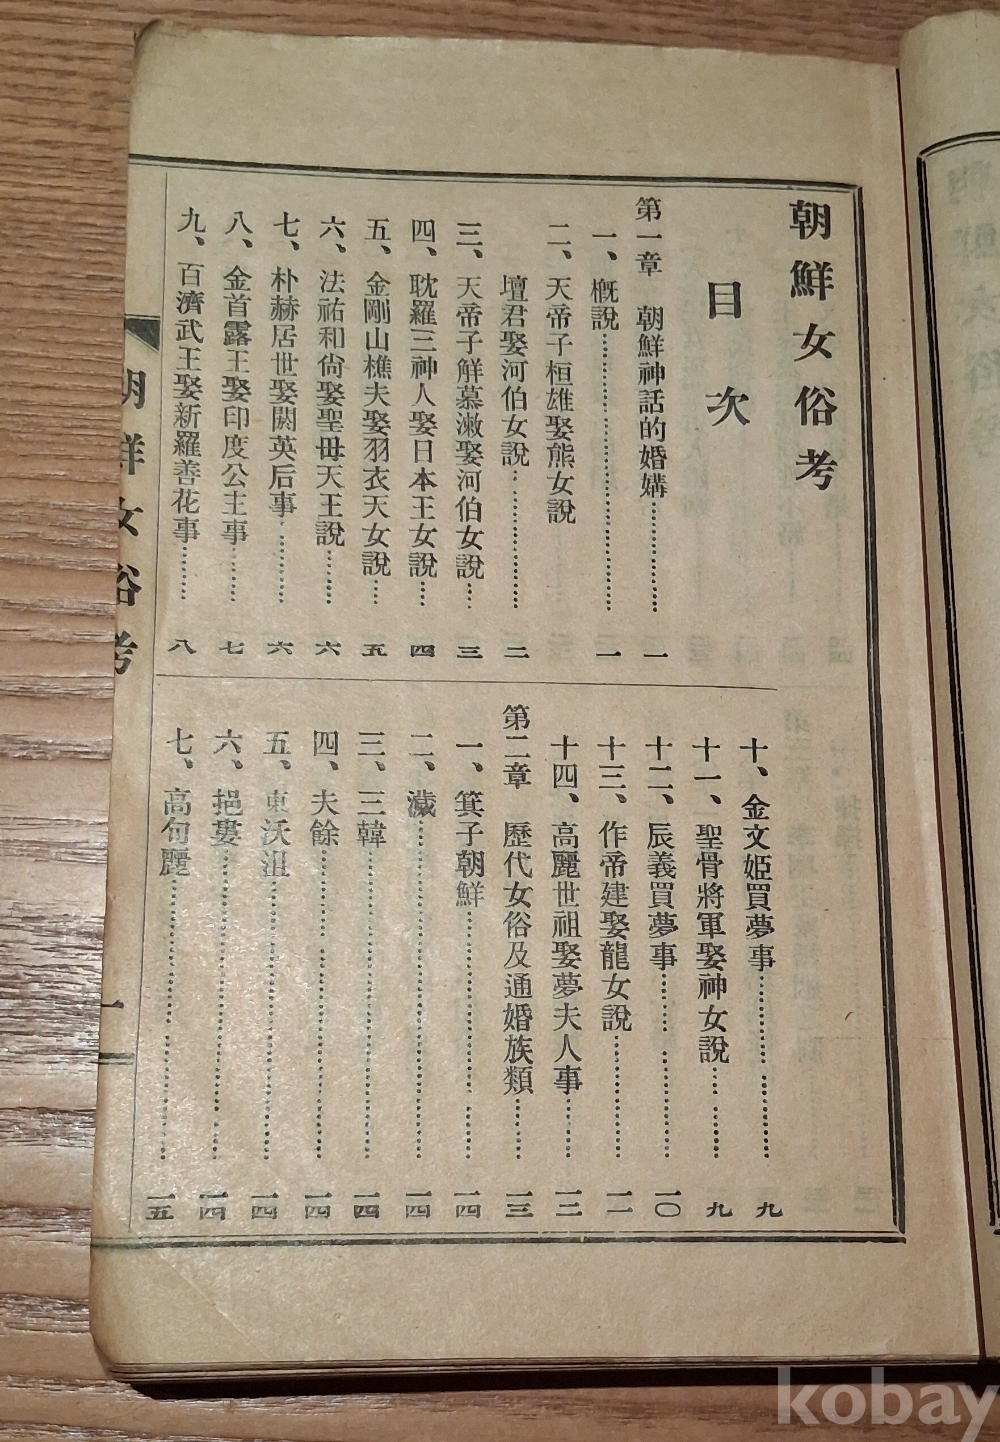 朝鮮女俗考
目次
第一章　朝鮮神話的婚媾…………一
一、概說…………一
二、天帝子桓雄娶熊女說
壇君娶河伯女說…………二
三、天帝子解慕漱娶河伯女說……三
四、耽羅三神人娶日本王女說……四
五、金剛山樵夫娶羽衣天女說……五
六、法祐和尙娶聖母天王說………六
七、朴赫居世娶閼英后事…………六
八、金首露王娶印度公主事………七
九、百濟武王娶新羅善花事………八
十、金文姬買夢事…………九
十一、聖骨將軍娶神女說…………九
十二、辰義買夢事…………一〇
十三、作帝建娶龍女說…………一一
十四、高麗世祖娶夢夫人事………一二
第二章　歷代女俗及通婚族類……一三
一、箕子朝鮮…………一四
二、濊…………一四
三、三韓…………一四
四、夫餘…………一四
五、東沃沮…………一四
六、挹婁…………一四
七、高句麗…………一五
朝鮮女俗考
一
kobay